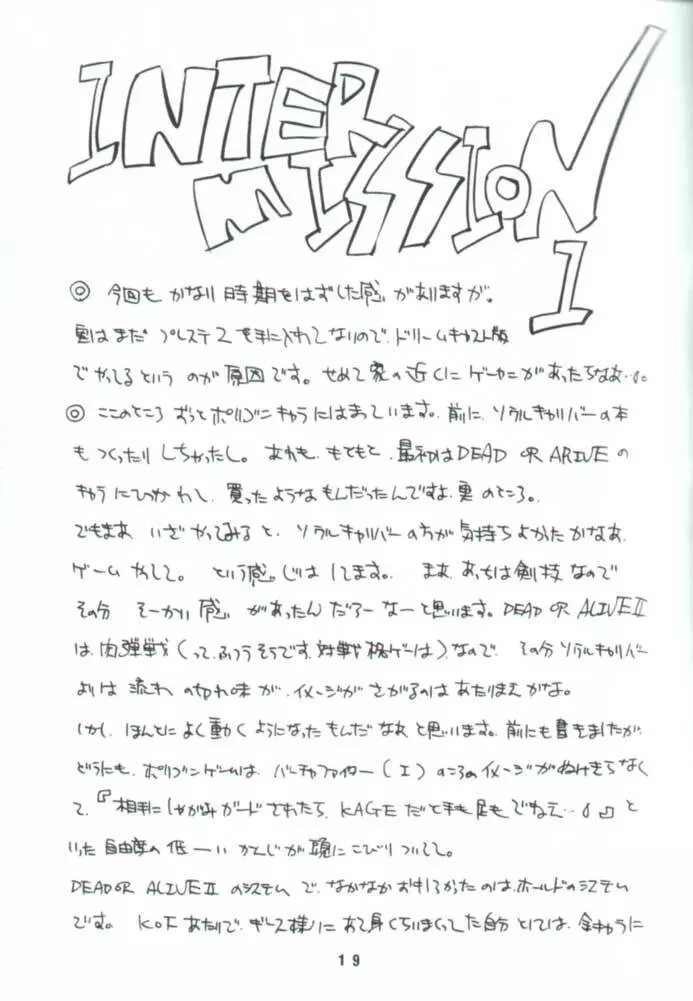 INTER
MISSION
I
◎ 今回も かなり時期をはずした感じがありますが。
実はまだ プレステ2を手に入れてないので、ドリームキャスト版
でやってるというのが原因です。せめて家の近くにゲーセンがあったらなあ…。
◎ ここのところ ずっとポリゴンキャラにはまっています。前に、ソウルキャリバーの本
もつくったりしちゃったし。あれも、もともと、最初はDEAD OR ARIVEの
キャラにひっかかって、買ったようなもんだったんですよ、実のところ。
でもまあ いざやってみると、ソウルキャリバーの方が気持ちよかったかなあ、
ゲームやしてて。という感じはしてます。まあ、あっちは剣技なので
その分 そーかい感が あったんだろーなーと思います。DEAD OR ALIVE II
は、肉弾戦(って、ふつうそうです、対戦格ゲーは)、なので、その分ソウルキャリバー
よりは 流れの切れ味が、イメージがさがるのはあたりまえかな。
しかし、ほんとによく動くようになったもんだなあと思います。前にも書きましたが、
どうにも、ポリゴンゲームは、バーチャファイター(I)のころのイメージがぬけきらなく
て、『相手にしゃがみガードされたら、KAGEだと手も足もでねえ…』と
いった自由度の低ーいかんじが頭にこびりついてて。
DEAD OR ALIVE IIのシステムで、なかなかおもしろかったのは、ホールドのシステム
です。KOFあたりで、ギース様にあて身くらいまくってた自分としては、全キャラに
19